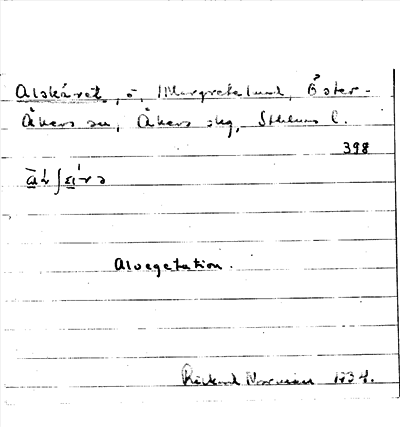 Alskäret, ö, Margretelund, Öster-
Åkers sn, Åkers skg, Sthlms l.
398
Alvegetation.
Rickard 1934.